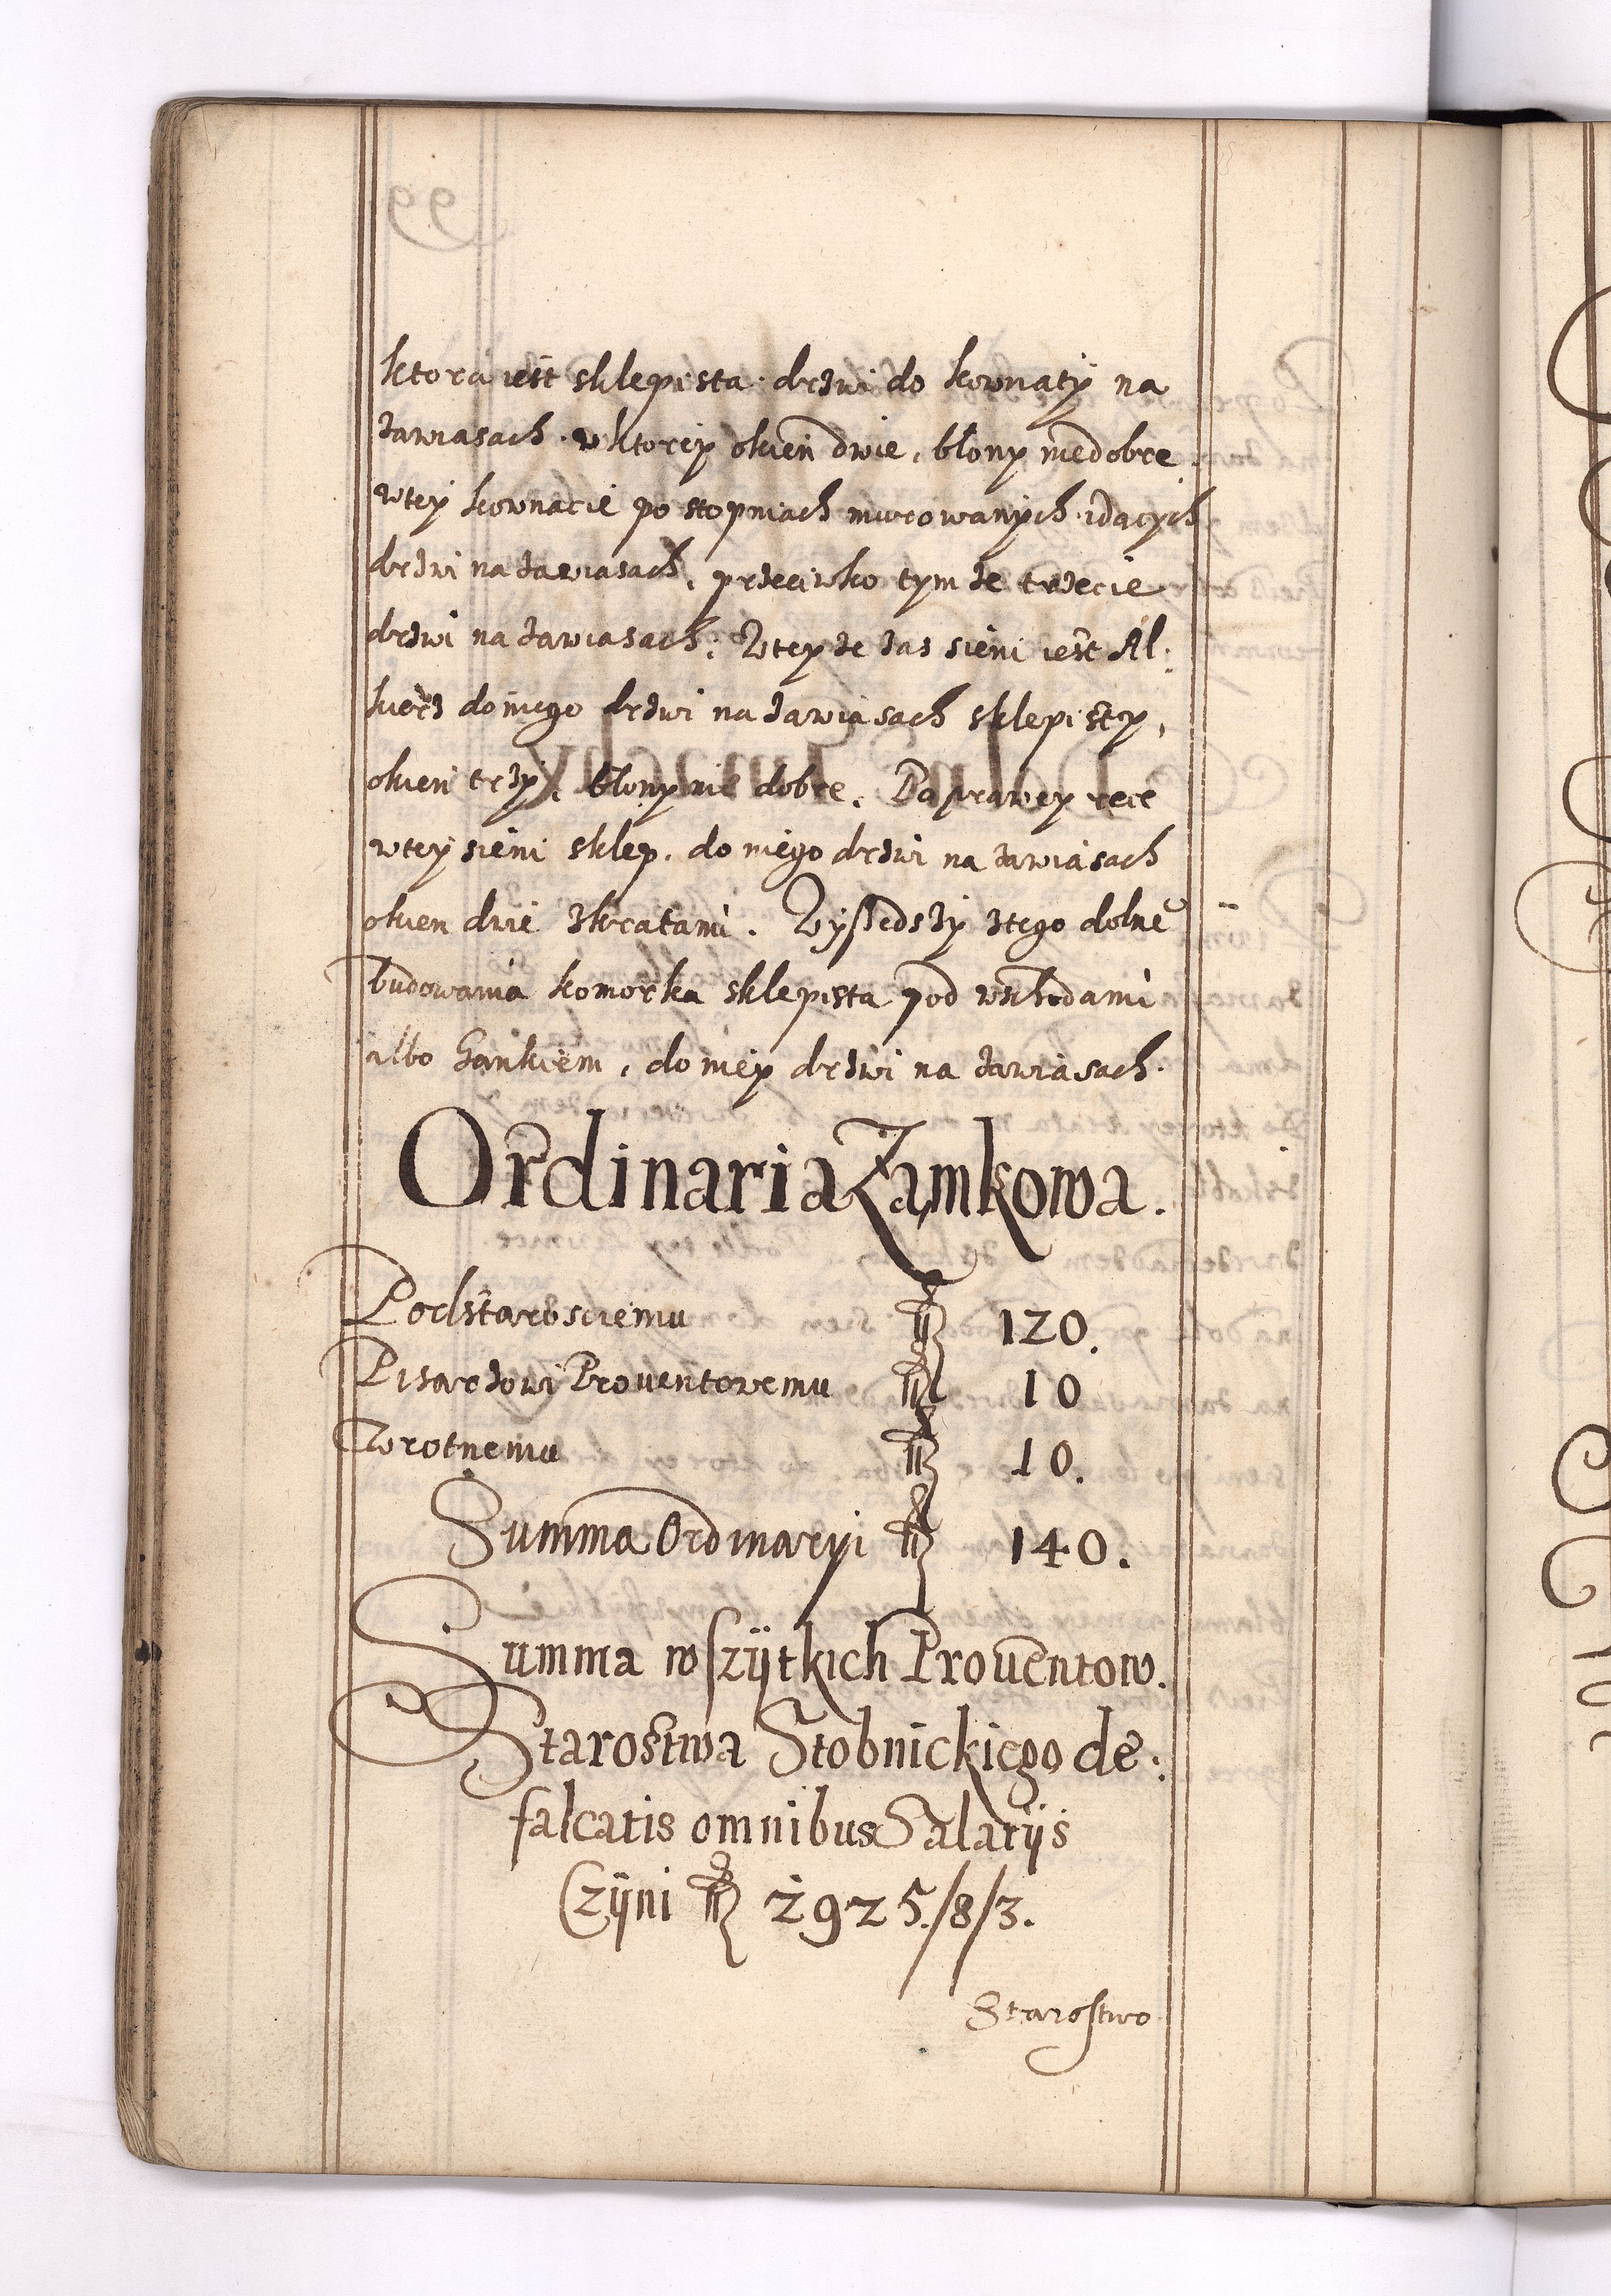 ktora iest sklepista: drzwi do kownaty na
zawiasach. wktorey okien dwie, błony niedobre.
wtey kownacie po stopniach murowanych idacych
drzwi na zawiasach, przeciwko tym ze trzecie
drzwi na zawiasach: Wteyze zas sieni iest Al:
kierz do niego drzwi na zawiasach sklepisty,
okien trzy, błony nie dobre. Po prawey rece
wtey sieni sklep, do niego drzwi na zawiasach
okien dwie zkratami. Wyszedszy ztego dolne°
budowania komorka sklepista pod wschodami
albo Gankiem, do niey drzwi na zawiasach.
Ordinaria Zamkowa.
Podstarosciemu 120.
Pisarzowi Prouentowemu 10
Wrotnemu 10.
Summa Ordinaryi 140.
Summa wszÿtkich Prouentow.
Starostwa Stobnickiego de:
falcatis omnibus Salarÿs
Czÿni 2925./8/3.
Starostwo